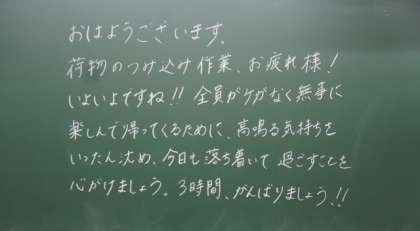 おはようございます。
荷物のつけ込み作業、お疲れ様!
いよいよですね!! 全員がケガなく無事に
楽しんで帰ってくるために、高鳴る気持ちを
いったん沈め、今日も落ち着いて過ごすことを
心がけましょう。3時間、がんばりましょう!!